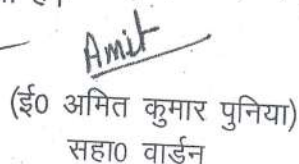 है।
Amit
(ई० अमित कुमार पुनिया)
सहा० वार्डन